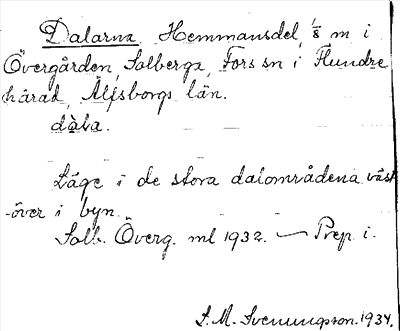 Dalarna Hemmansdel, 1/8 m i
Övergården, Solberga, Fors sn i Flundre
härad, Älfsborgs län.
dàla.
Läge i de stora dalområdena väst
-över i byn.
Solb. Överg. ml 1932. — Prep. i.
S. M. Svenungson. 1934.